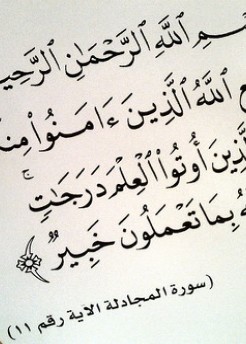 ـمِ ٱللَّهِ ٱلرَّحْمَٰنِ ٱلرَّحِيـ
ـعِ ٱللَّهُ ٱلَّذِينَ ءَامَنُوا۟ مِنـ
ـذِينَ أُوتُوا۟ ٱلْعِلْمَ دَرَجَٰتٍ ۚ
بِمَا تَعْمَلُونَ خَبِيرٌ
(سورة المجادلة الآية رقم ١١)